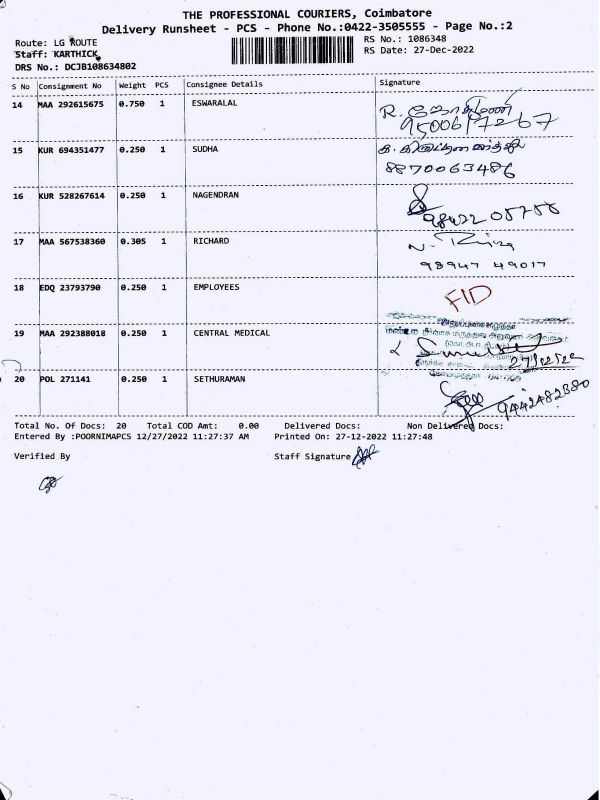 THE PROFESSIONAL COURIERS, Coimbatore
Delivery Runsheet - PCS - Phone No.:0422-3505555 - Page No.:2
Route: LG ROUTE
RS No.: 1086348
Staff: KARTHICK
RS Date: 27-Dec-2022
DRS No.: DCJB108634802
S No Consignment No Weight PCS Consignee Details Signature
14 MAA 292615675 0.750 1 ESWARALAL
R. ஜோதிமணி
15 KUR 694351477 0.250 1 SUDHA
8870063486
16 KUR 528267614 0.250 1 NAGENDRAN
17 MAA 567538360 0.305 1 RICHARD
98947 49017
18 EDQ 23793790 0.250 1 EMPLOYEES
FID
19 MAA 292388018 0.250 1 CENTRAL MEDICAL
27/12/22
20 POL 271141 0.250 1 SETHURAMAN
9442482380
Total No. Of Docs: 20 Total COD Amt: 0.00 Delivered Docs: Non Delivered Docs:
Entered By :POORNIMAPCS 12/27/2022 11:27:37 AM Printed On: 27-12-2022 11:27:48
Verified By Staff Signature